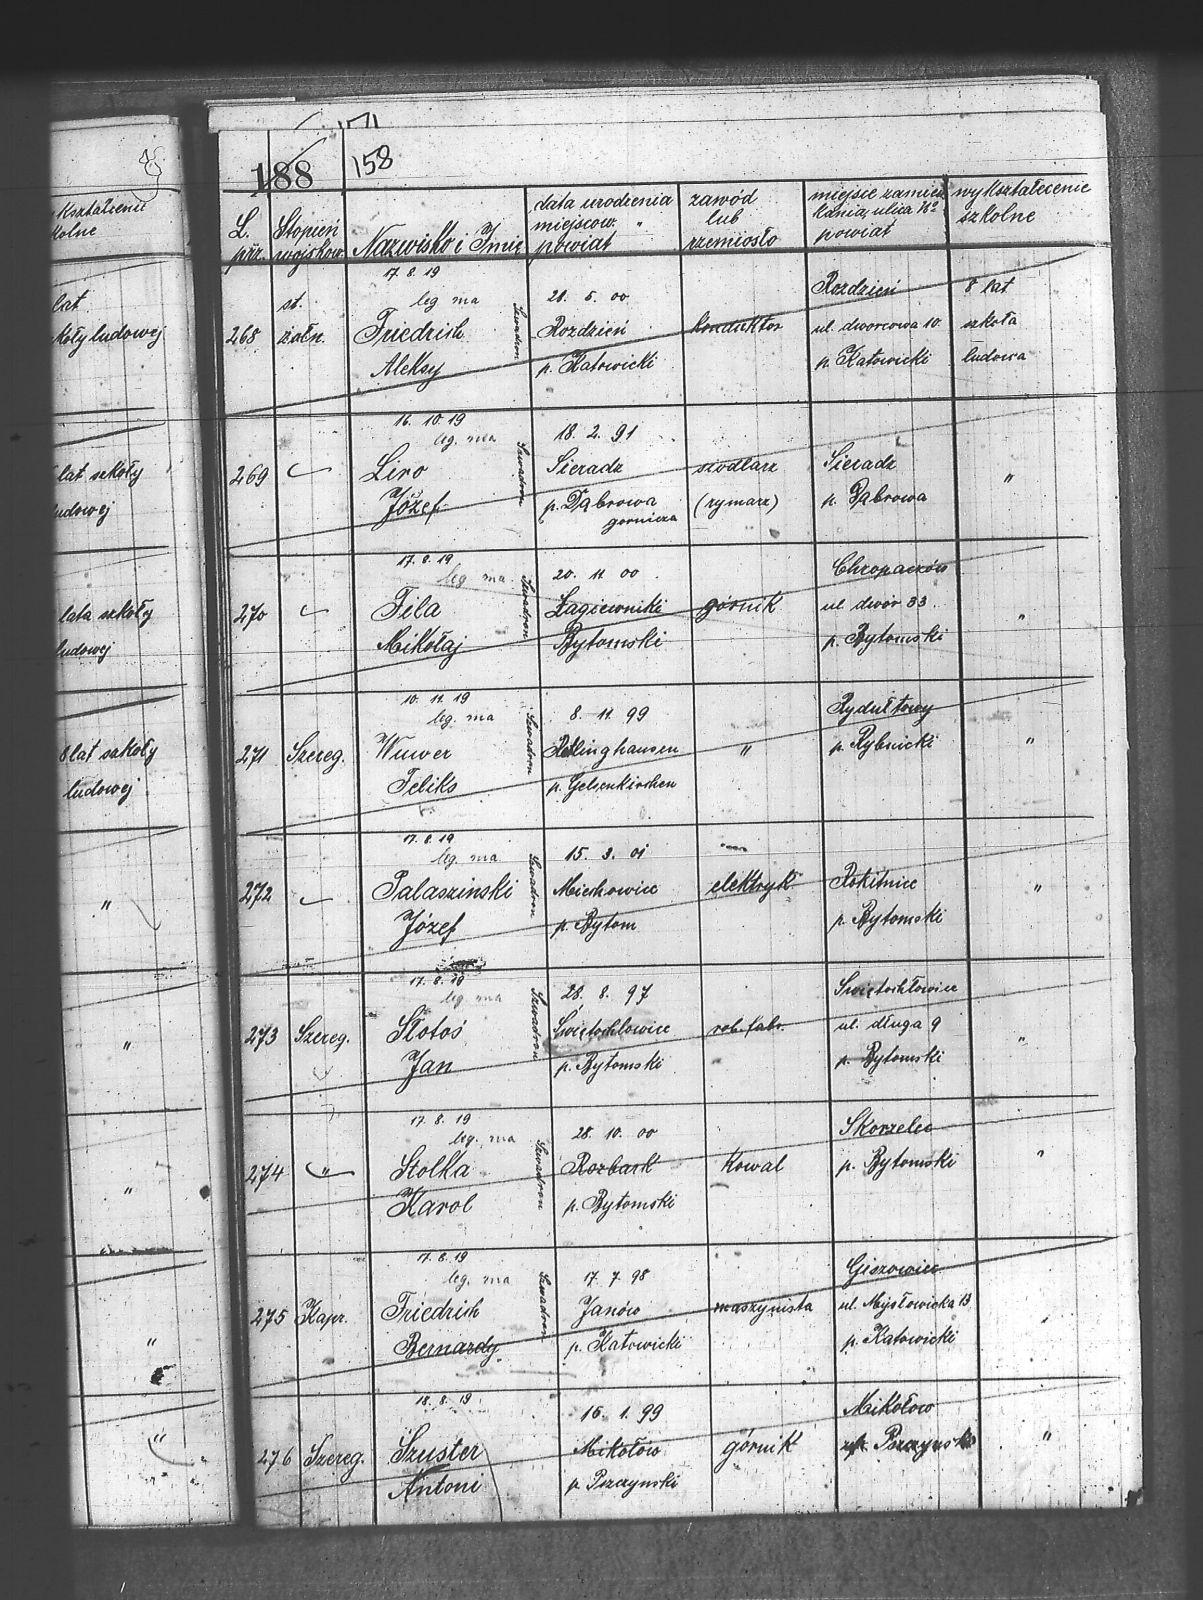 188 158
kształcenie
L. Stopień Nazwisko i Imię data urodzenia zawód miejsce zamiesz wykształcenie
prz. wojskow. miejscow. " lub kania, ulica No szkolne
powiat rzemiosło powiat
17 8 19 Rozdzień 8 lat
lat st. leg ma 21. 5. 00
szkoły ludowej 268 żołn. Friedrich Szwadron Rozdzień konduktor ul. dworcowa 10. szkoła
Aleksy p. Katowicki p. Katowicki ludowa
16. 10. 19
leg. ma 18. 2. 91
lat szkoły 269 Liro Szwadron Sieradz siodlarz Sieradz "
ludowej Józef p. Dąbrowa (rymarz) p. Dąbrowa
gornicza
17. 8. 19 Chropaczów
leg ma 20. 11. 00
lata szkoły 270 Fila Szwadron Łagiewniki górnik ul dwór 33. "
ludowej Mikołaj Bytomski p. Bytomski
10. 11. 19 Rydułtowy
leg. ma 8. 11. 99
8 lat szkoły 271 Szereg. Wuwer Szwadron p. Rybnicki "
ludowej Feliks p. Gelsenkirchen
17. 8. 19
leg. ma 15. 3. 01
" 272 Palaszinski Szwadron Miechowice elektryk Rokitnice "
Józef p. Bytom p. Bytomski
17. 8. Świętochłowice
leg ma 28. 8. 97
" 273 Szereg. Szwadron Świętochłowice rob. fabr. ul. długa 9 "
Jan p. Bytomski p. Bytomski
17. 8. 19 Skorzelec
leg. ma 28. 10. 00
" 274 " Stolka Szwadron Rozbark Kowal p. Bytomski "
Karol p. Bytomski
17. 8. 19 Giszowiec
leg. ma 17. 7. 98
" 275 Kapr. Friedrich Szwadron Janów maszynista ul. Mysłowicka 13
Bernardy p. Katowicki p. Katowicki
18. 8. 19 Mikołow
16. 1. 99
" 276 Szereg. Szuster Mikołów górnik "
Antoni p. Pszczynski